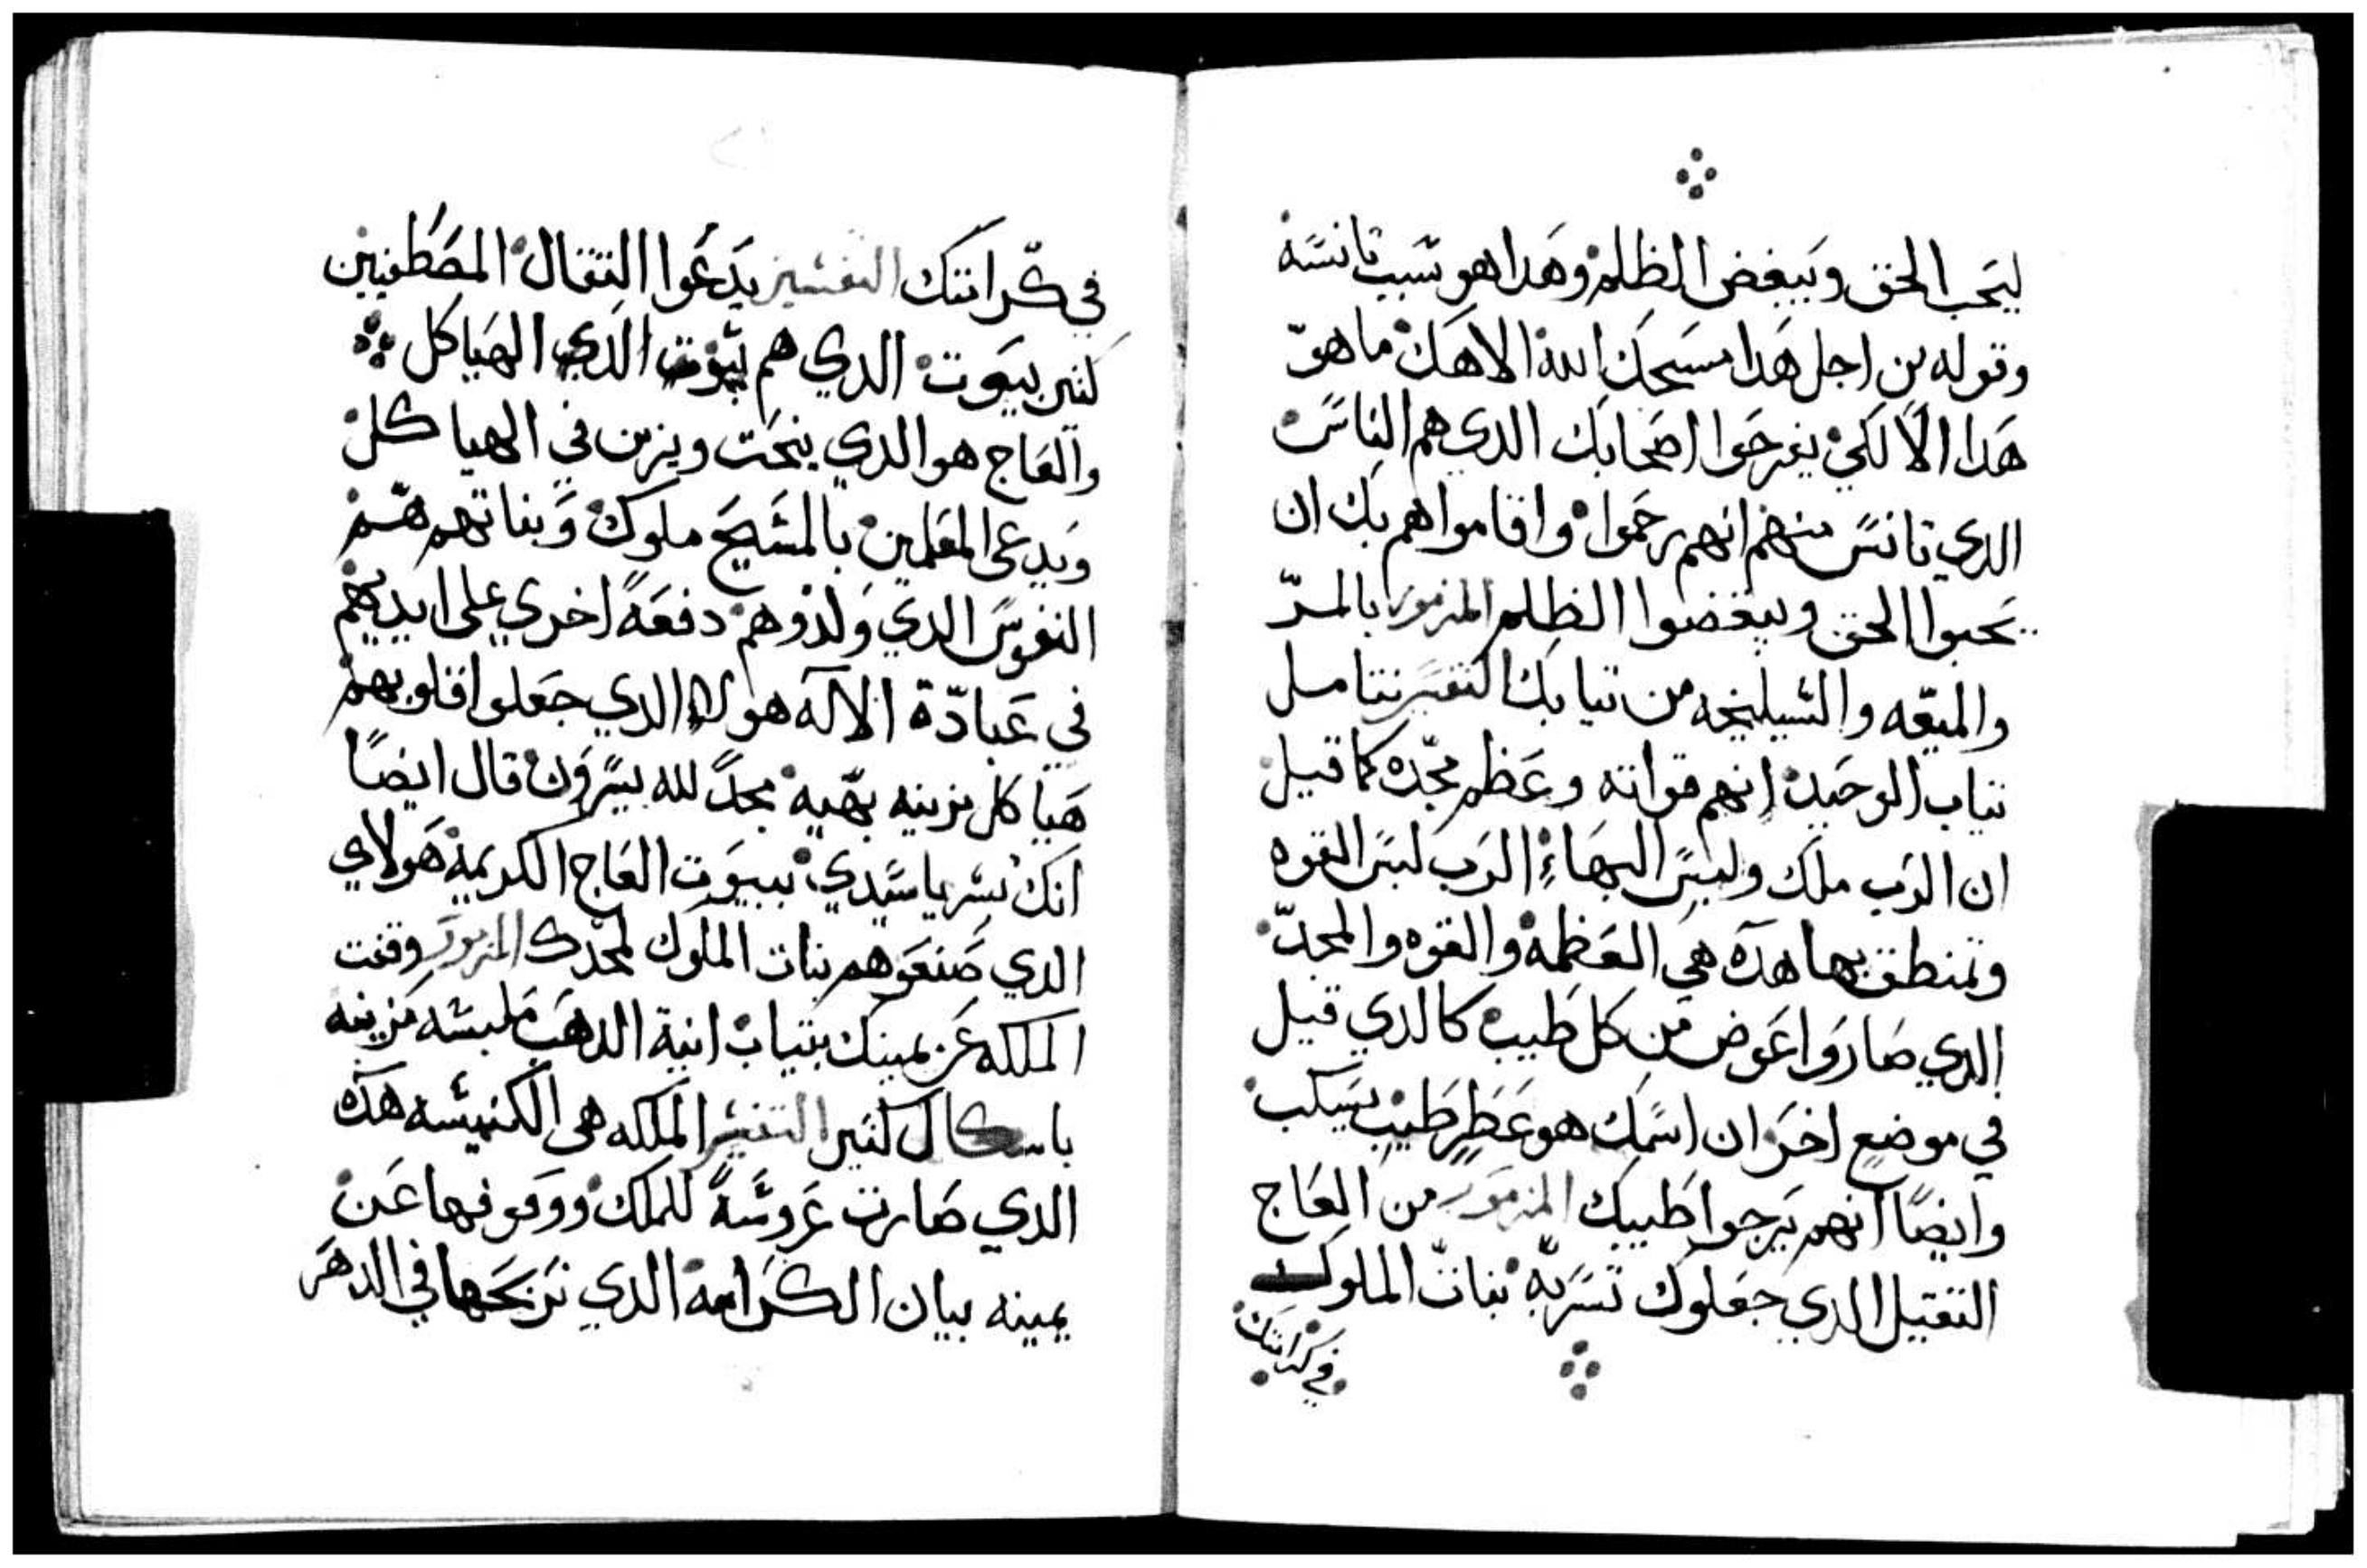 ليحب الحق ويبغض الظلم وهدا هو سبب تانسه
وقوله من اجل هدا مسحك الله الاهك ما هو
هدا الا لكي يفرحوا اصحابك الدي هم الناس
الدي تانس منهم انهم رحموا واقاموا هم بك ان
يحبوا الحق ويبغضوا الظلم المزمور بالمر
والميعه والسليخه من تيابك التفسير نتامل
تياب الوحيد انهم قواته وعظم مجده كما قيل
ان الرب ملك ولبس البهاء الرب لبس القوه
وتمنطق بها هده هي العظمة والقوه والمجد
الدي صاروا عوض من كل طيب كالدي قيل
في موضع اخر ان اسمك هو عطر طيب يسكب
وايضًا انهم يرجوا طيبك المزمور من العاج
التقيل الدي جعلوك تسر به بنات الملوك
في كرامتك
في كرامتك التفسير يدعوا التقال المصطفيين
كتير بيوت الدي هم بيوت الدي الهياكل
والعاج هو الدي ينحت ويزين في الهياكل
ويدعى المعلمين بالمسيح ملوك وبناتهم هم
النفوس الدي ولدوهم دفعةً اخري علي ايديهم
في عبادة الاله هولاء الدي جعلوا قلوبهم
هياكل مزينه بهيه مجدًا لله يسرون قال ايضًا
انك تسر يا سيدي ببيوت العاج الكريمة هولاي
الدي صنعوهم بنات الملوك لمجدك المزمور وقفت
الملكه عن يمينك بتياب انية الدهب ملبسه مزينه
باشكال كتير التفسير الملكه هى الكنيسه هده
الدي صارت عروسةً للملك ووقوفها عن
يمينه بيان الكرامة الدي تربحها في الدهر